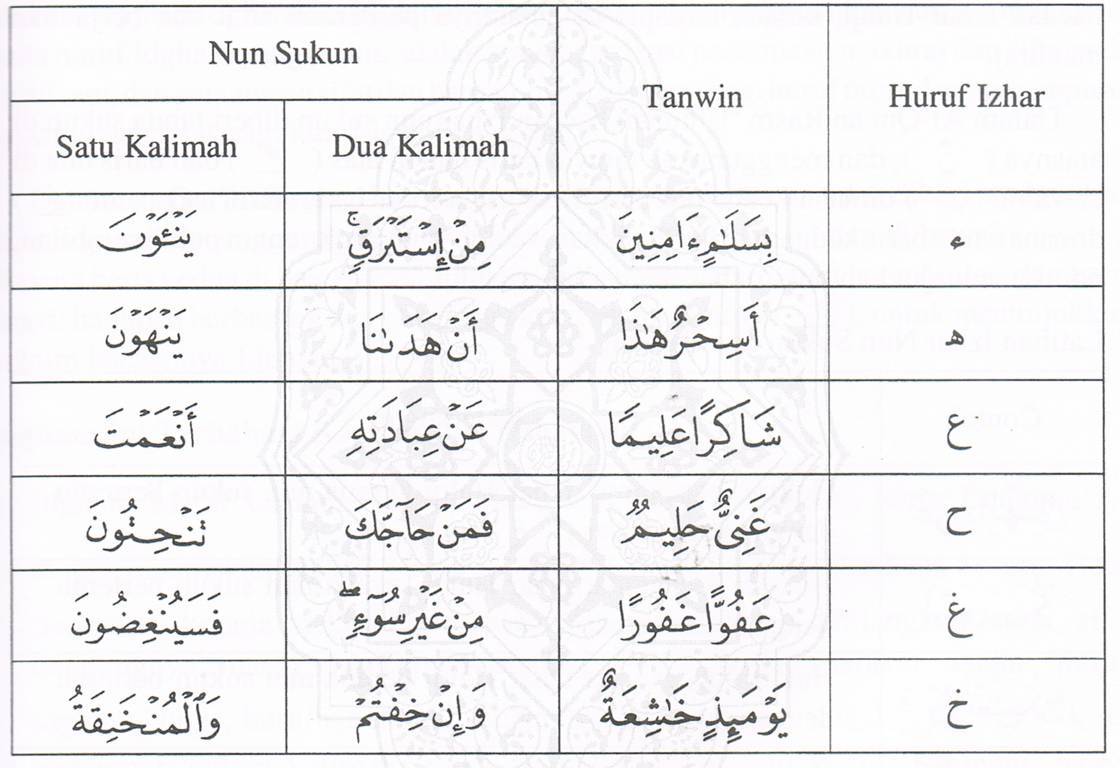 Nun Sukun Tanwin Huruf Izhar
Satu Kalimah Dua Kalimah
يَنْـَٔوْنَ مِنْ إِسْتَبْرَقٍۚ بِسَلَـٰمٍ ءَامِنِينَ ء
يَنْهَوْنَ أَنْ هَدَىٰنَا أَسِحْرٌ هَـٰذَا هـ
أَنْعَمْتَ عَنْ عِبَادَتِهِ شَاكِرًا عَلِيمًا ع
تَنْحِتُونَ فَمَنْ حَآجَّكَ غَنِىٌّ حَلِيمٌ ح
فَسَيُنْغِضُونَ مِنْ غَيْرِ سُوٓءٍۖ عَفُوًّا غَفُورًا غ
وَٱلْمُنْخَنِقَةُ وَإِنْ خِفْتُمْ يَوْمَئِذٍ خَـٰشِعَةٌ خ